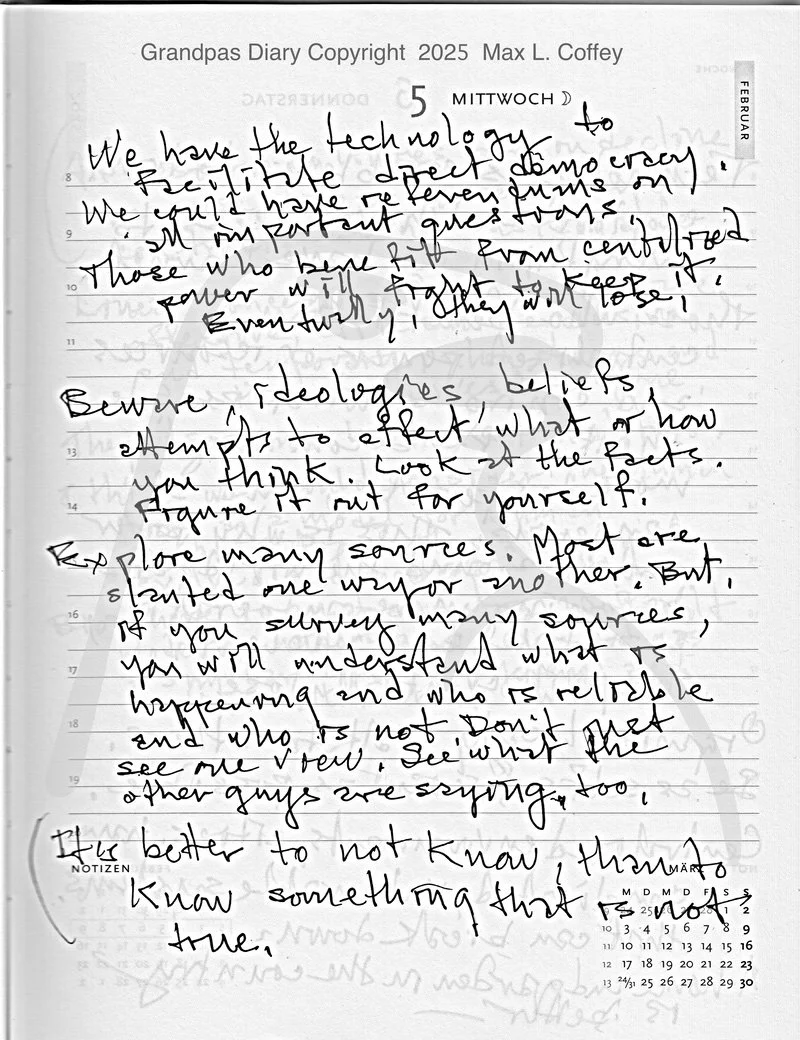 Grandpas Diary Copyright 2025 Max L. Coffey
5 MITTWOCH
FEBRUAR
We have the technology to
facilitate direct democracy.
8
We could have referendums on
all important questions.
9
Those who benefitt from centilized
10
power will fight to keep it.
Eventually, they will lose.
11
Beware, ideologies, beliefs,
attempts to affect what or how
13
you think. Look at the facts.
14
Figure it out for yourself.
Explore many sources. Most are
slanted one way or another. But,
16
if you survey many sources,
you will understand what is
17
happening and who is reliable
18
and who is not. Don't just
see one view. See what the
19
other guys are saying, too.
It is better to not know, than to
NOTIZEN
MÄRZ
know something that is not
true.
M D M D F S S
1 2
10 3 4 5 6 7 8 9
11 10 11 12 13 14 15 16
12 17 18 19 20 21 22 23
13 24/31 25 26 27 28 29 30